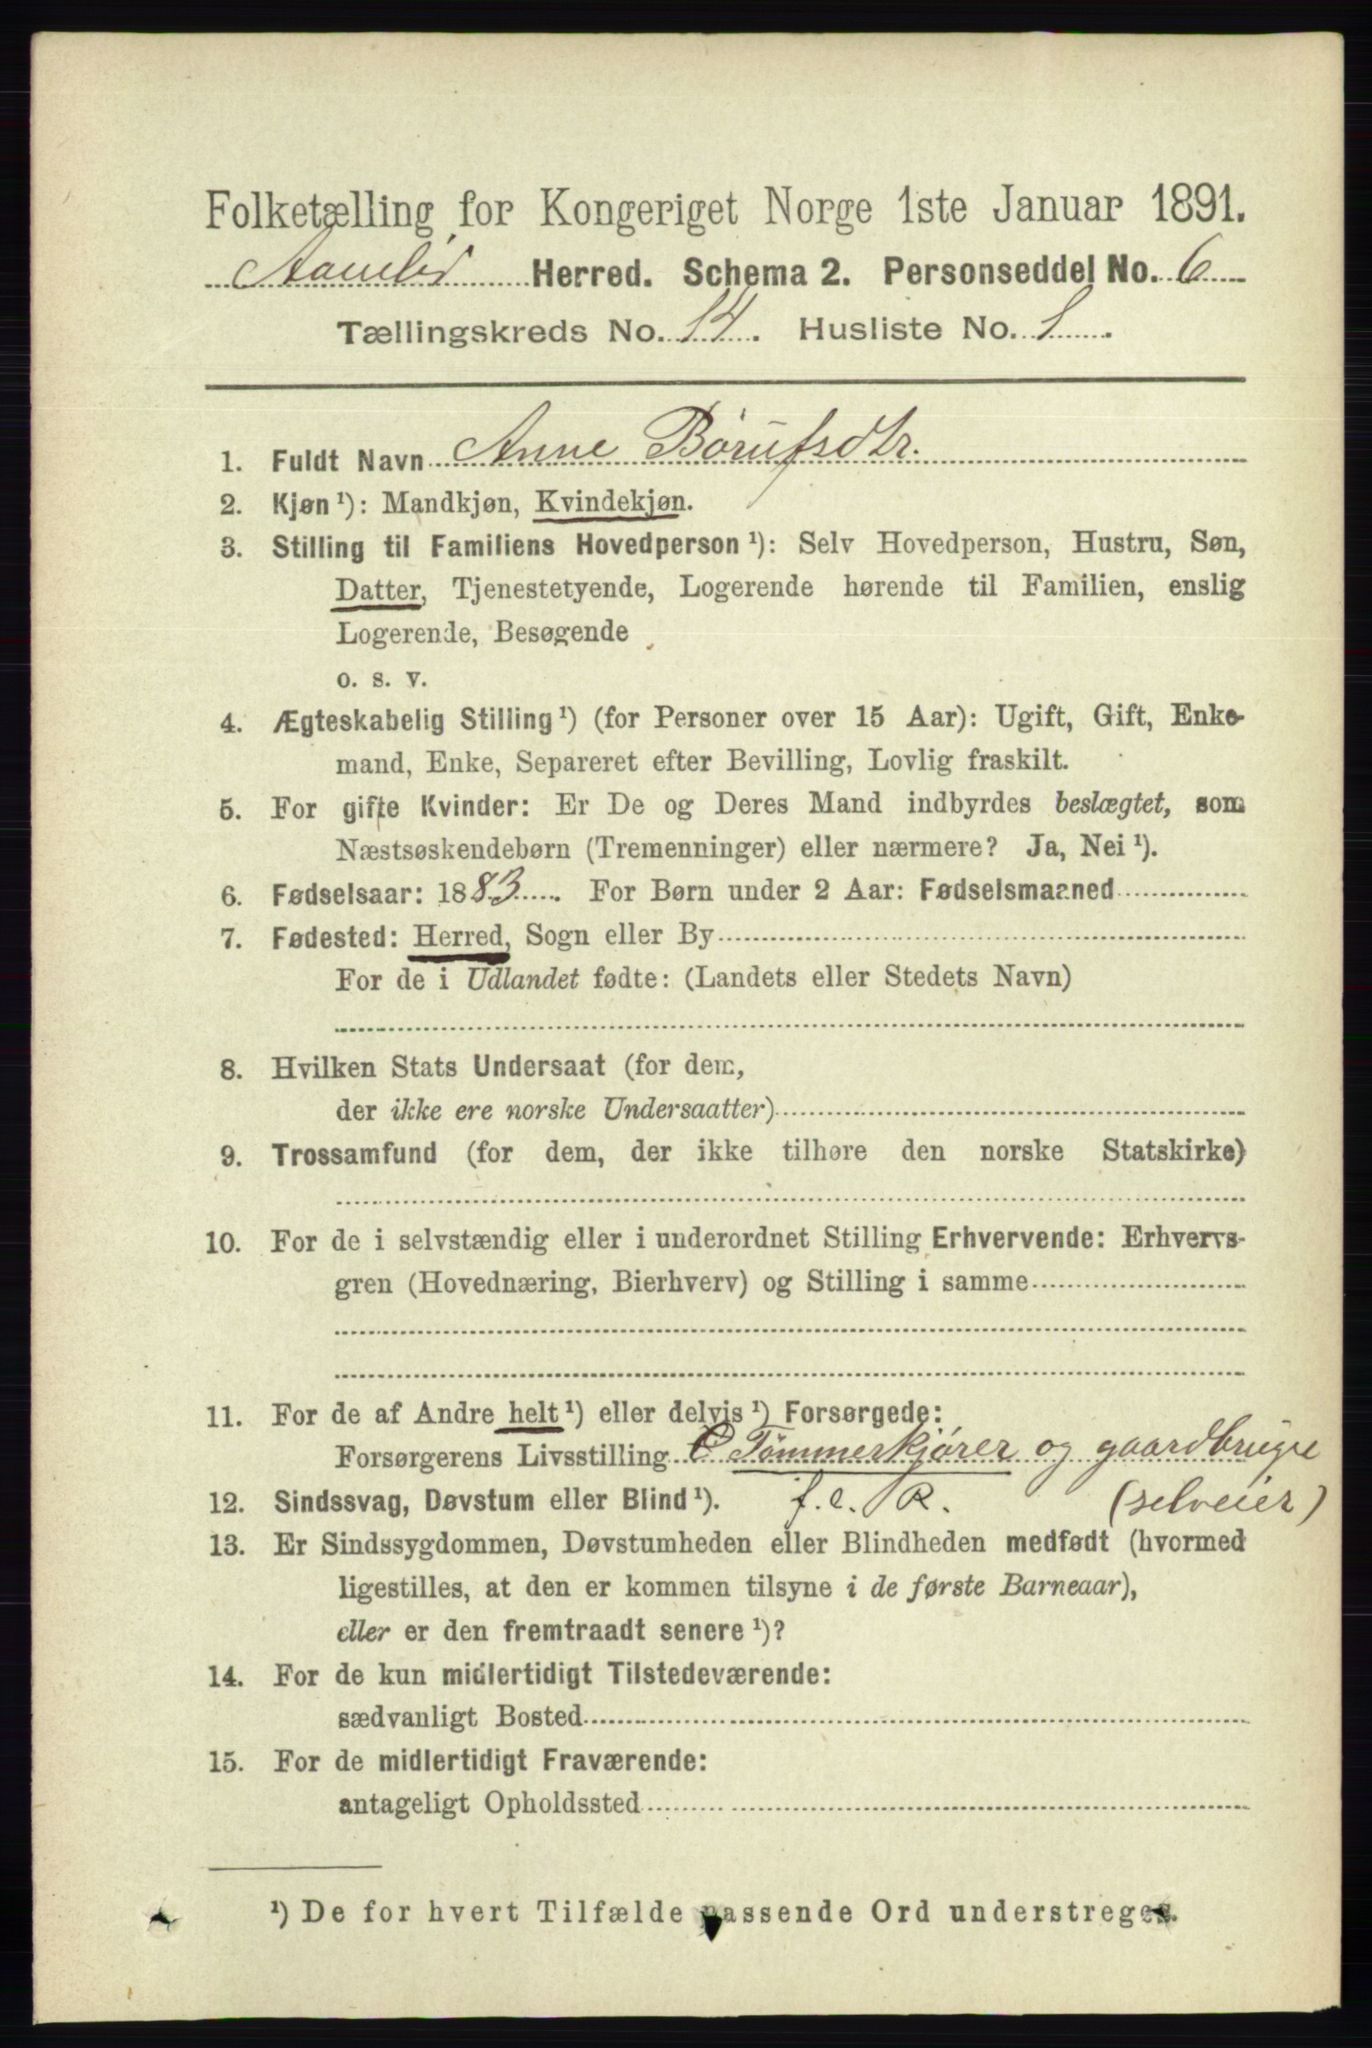 Folketælling for Kongeriget Norge 1ste Januar 1891.
Aamlid Herred. Schema 2. Personseddel No. 6
Tællingskreds No. 14. Husliste No. 1
1. Fuldt Navn Anne Børufsdtr.
2. Kjøn ¹): Mandkjøn, Kvindekjøn.
3. Stilling til Familiens Hovedperson ¹): Selv Hovedperson, Hustru, Søn,
Datter, Tjenestetyende, Logerende hørende til Familien, enslig
Logerende, Besøgende
o. s. v.
4. Ægteskabelig Stilling ¹) (for Personer over 15 Aar): Ugift, Gift, Enke-
mand, Enke, Separeret efter Bevilling, Lovlig fraskilt.
5. For gifte Kvinder: Er De og Deres Mand indbyrdes beslægtet, som
Næstsøskendebørn (Tremenninger) eller nærmere? Ja, Nei ¹).
6. Fødselsaar: 1883. For Børn under 2 Aar: Fødselsmaaned
7. Fødested: Herred, Sogn eller By
For de i Udlandet fødte: (Landets eller Stedets Navn)
8. Hvilken Stats Undersaat (for dem,
der ikke ere norske Undersaatter)
9. Trossamfund (for dem, der ikke tilhøre den norske Statskirke)
10. For de i selvstændig eller i underordnet Stilling Erhvervende: Erhvervs-
gren (Hovednæring, Bierhverv) og Stilling i samme
11. For de af Andre helt ¹) eller delvis ¹) Forsørgede:
Forsørgerens Livsstilling Tømmerkjører og gaardbruger
12. Sindssvag, Døvstum eller Blind ¹). f.c. R. (selveier)
13. Er Sindssygdommen, Døvstumheden eller Blindheden medfødt (hvormed
ligestilles, at den er kommen tilsyne i de første Barneaar),
eller er den fremtraadt senere ¹)?
14. For de kun midlertidigt Tilstedeværende:
sædvanligt Bosted
15. For de midlertidigt Fraværende:
antageligt Opholdssted
¹) De for hvert Tilfælde passende Ord understreges.